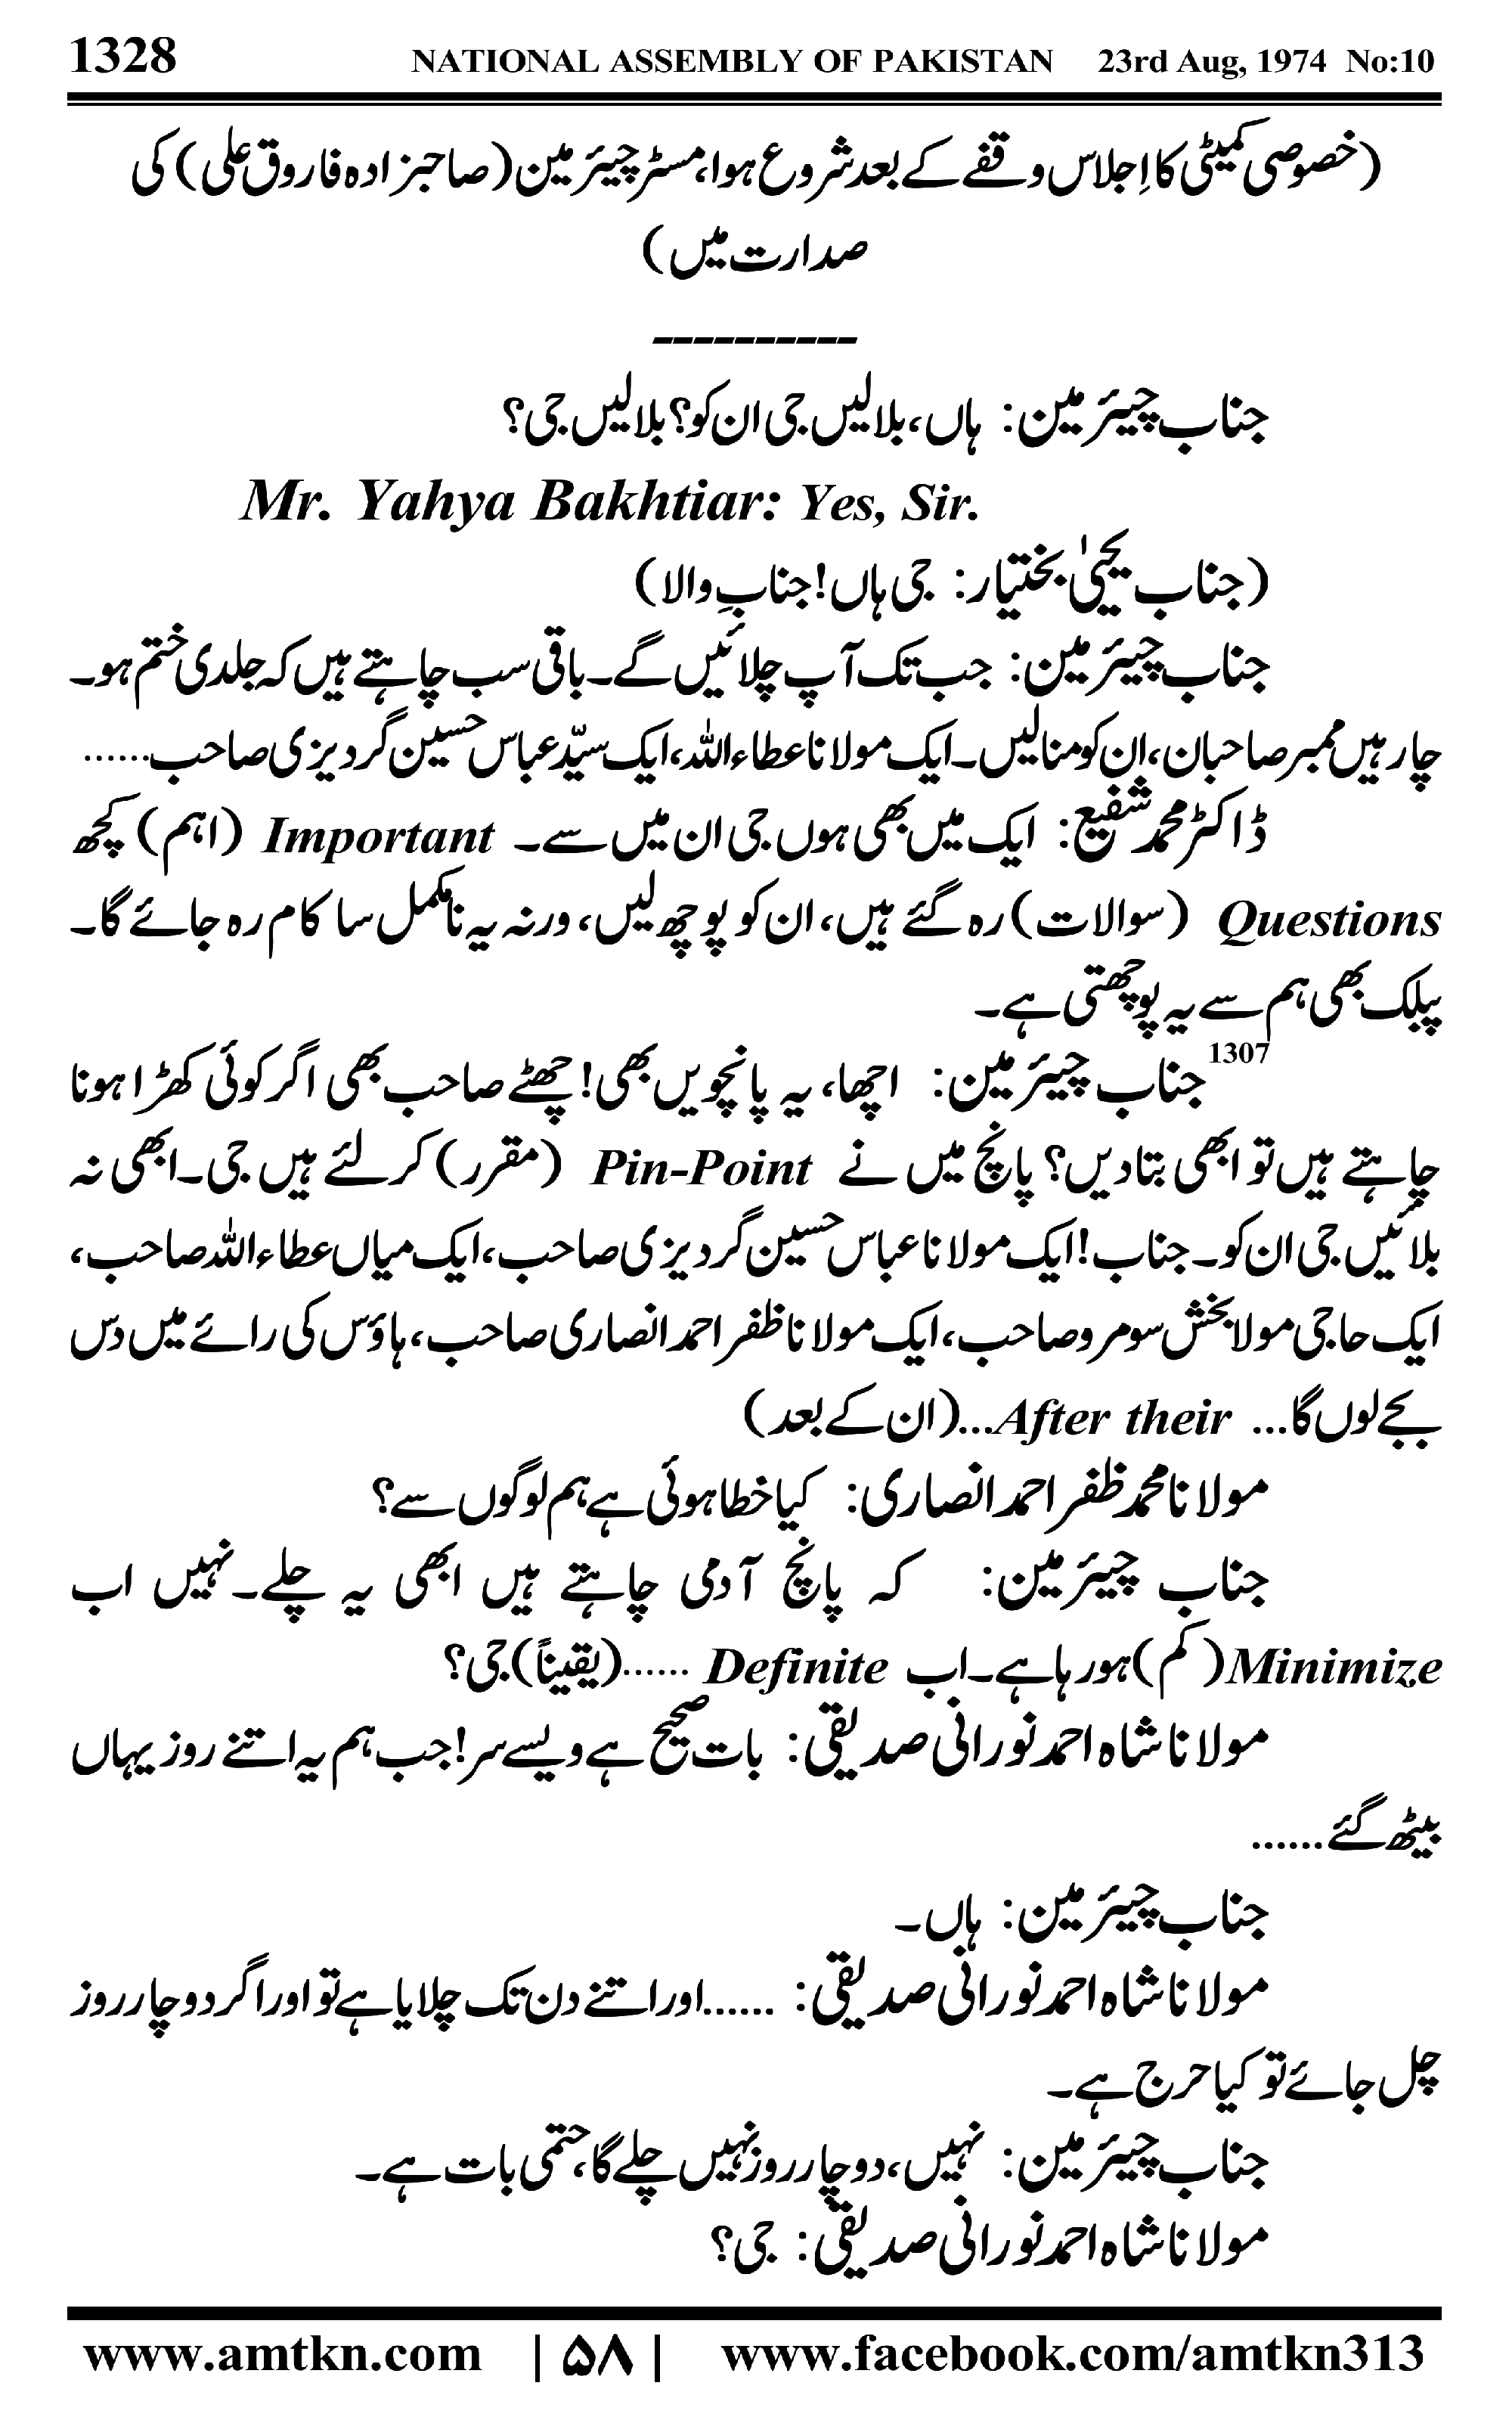 1328 NATIONAL ASSEMBLY OF PAKISTAN 23rd Aug, 1974 No:10
(خصوصی کمیٹی کا اِجلاس وقفے کے بعد شروع ہوا، مسٹر چیئرمین (صاحبزادہ فاروق علی) کی
صدارت میں)
----------
جناب چیئرمین: ہاں، بلالیں جی ان کو؟ بلالیں جی؟
Mr. Yahya Bakhtiar: Yes, Sir.
(جناب یحییٰ بختیار: جی ہاں! جنابِ والا)
جناب چیئرمین: جب تک آپ چلائیں گے۔ باقی سب چاہتے ہیں کہ جلدی ختم ہو۔
چار ہیں ممبر صاحبان، ان کو منالیں۔ ایک مولانا عطاء اللہ، ایک سیّد عباس حسین گردیزی صاحب......
ڈاکٹر محمد شفیع: ایک میں بھی ہوں جی ان میں سے۔ Important (اہم) کچھ
Questions (سوالات) رہ گئے ہیں، ان کو پوچھ لیں، ورنہ یہ نامکمل سا کام رہ جائے گا۔
پبلک بھی ہم سے یہ پوچھتی ہے۔
1307 جناب چیئرمین: اچھا، یہ پانچویں بھی! چھٹے صاحب بھی اگر کوئی کھڑا ہونا
چاہتے ہیں تو ابھی بتادیں؟ پانچ میں نے Pin-Point (مقرر) کر لئے ہیں جی۔ ابھی نہ
بلائیں جی ان کو۔ جناب! ایک مولانا عباس حسین گردیزی صاحب، ایک میاں عطاء اللہ صاحب،
ایک حاجی مولا بخش سومرو صاحب، ایک مولانا ظفر احمد انصاری صاحب، ہاؤس کی رائے میں دس
بجے لوں گا... After their...(ان کے بعد)
مولانا محمد ظفر احمد انصاری: کیا خطا ہوئی ہے ہم لوگوں سے؟
جناب چیئرمین: کہ پانچ آدمی چاہتے ہیں ابھی یہ چلے۔ نہیں اب
Minimize (کم) ہورہا ہے۔ اب Definite ......(یقیناً) جی؟
مولانا شاہ احمد نورانی صدیقی: بات صحیح ہے ویسے سر! جب ہم یہ اتنے روز یہاں
بیٹھ گئے......
جناب چیئرمین: ہاں۔
مولانا شاہ احمد نورانی صدیقی: ......اور اتنے دن تک چلایا ہے تو اور اگر دو چار روز
چل جائے تو کیا حرج ہے۔
جناب چیئرمین: نہیں، دو چار روز نہیں چلے گا، حتمی بات ہے۔
مولانا شاہ احمد نورانی صدیقی: جی؟
www.amtkn.com | ۵۸ | www.facebook.com/amtkn313